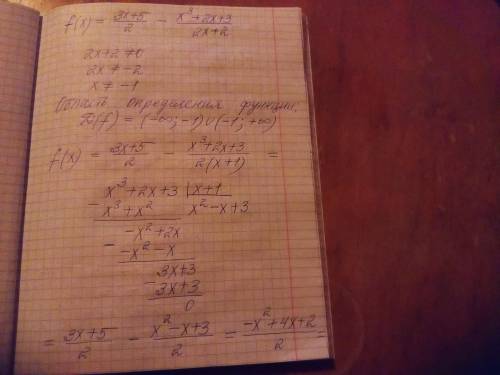 f(x) = (3x+5)/2 - (x³+2x+3)/(2x+2)
2x+2 ≠ 0
2x ≠ -2
x ≠ -1
Область определения функции:
D(f) = (-∞; -1) ∪ (-1; +∞)
f(x) = (3x+5)/2 - (x³+2x+3)/(2(x+1)) =
x³+2x+3 | x+1
- x³+x² x²-x+3
-x²+2x
- -x²-x
3x+3
- 3x+3
0
= (3x+5)/2 - (x²-x+3)/2 = (-x²+4x+2)/2 =